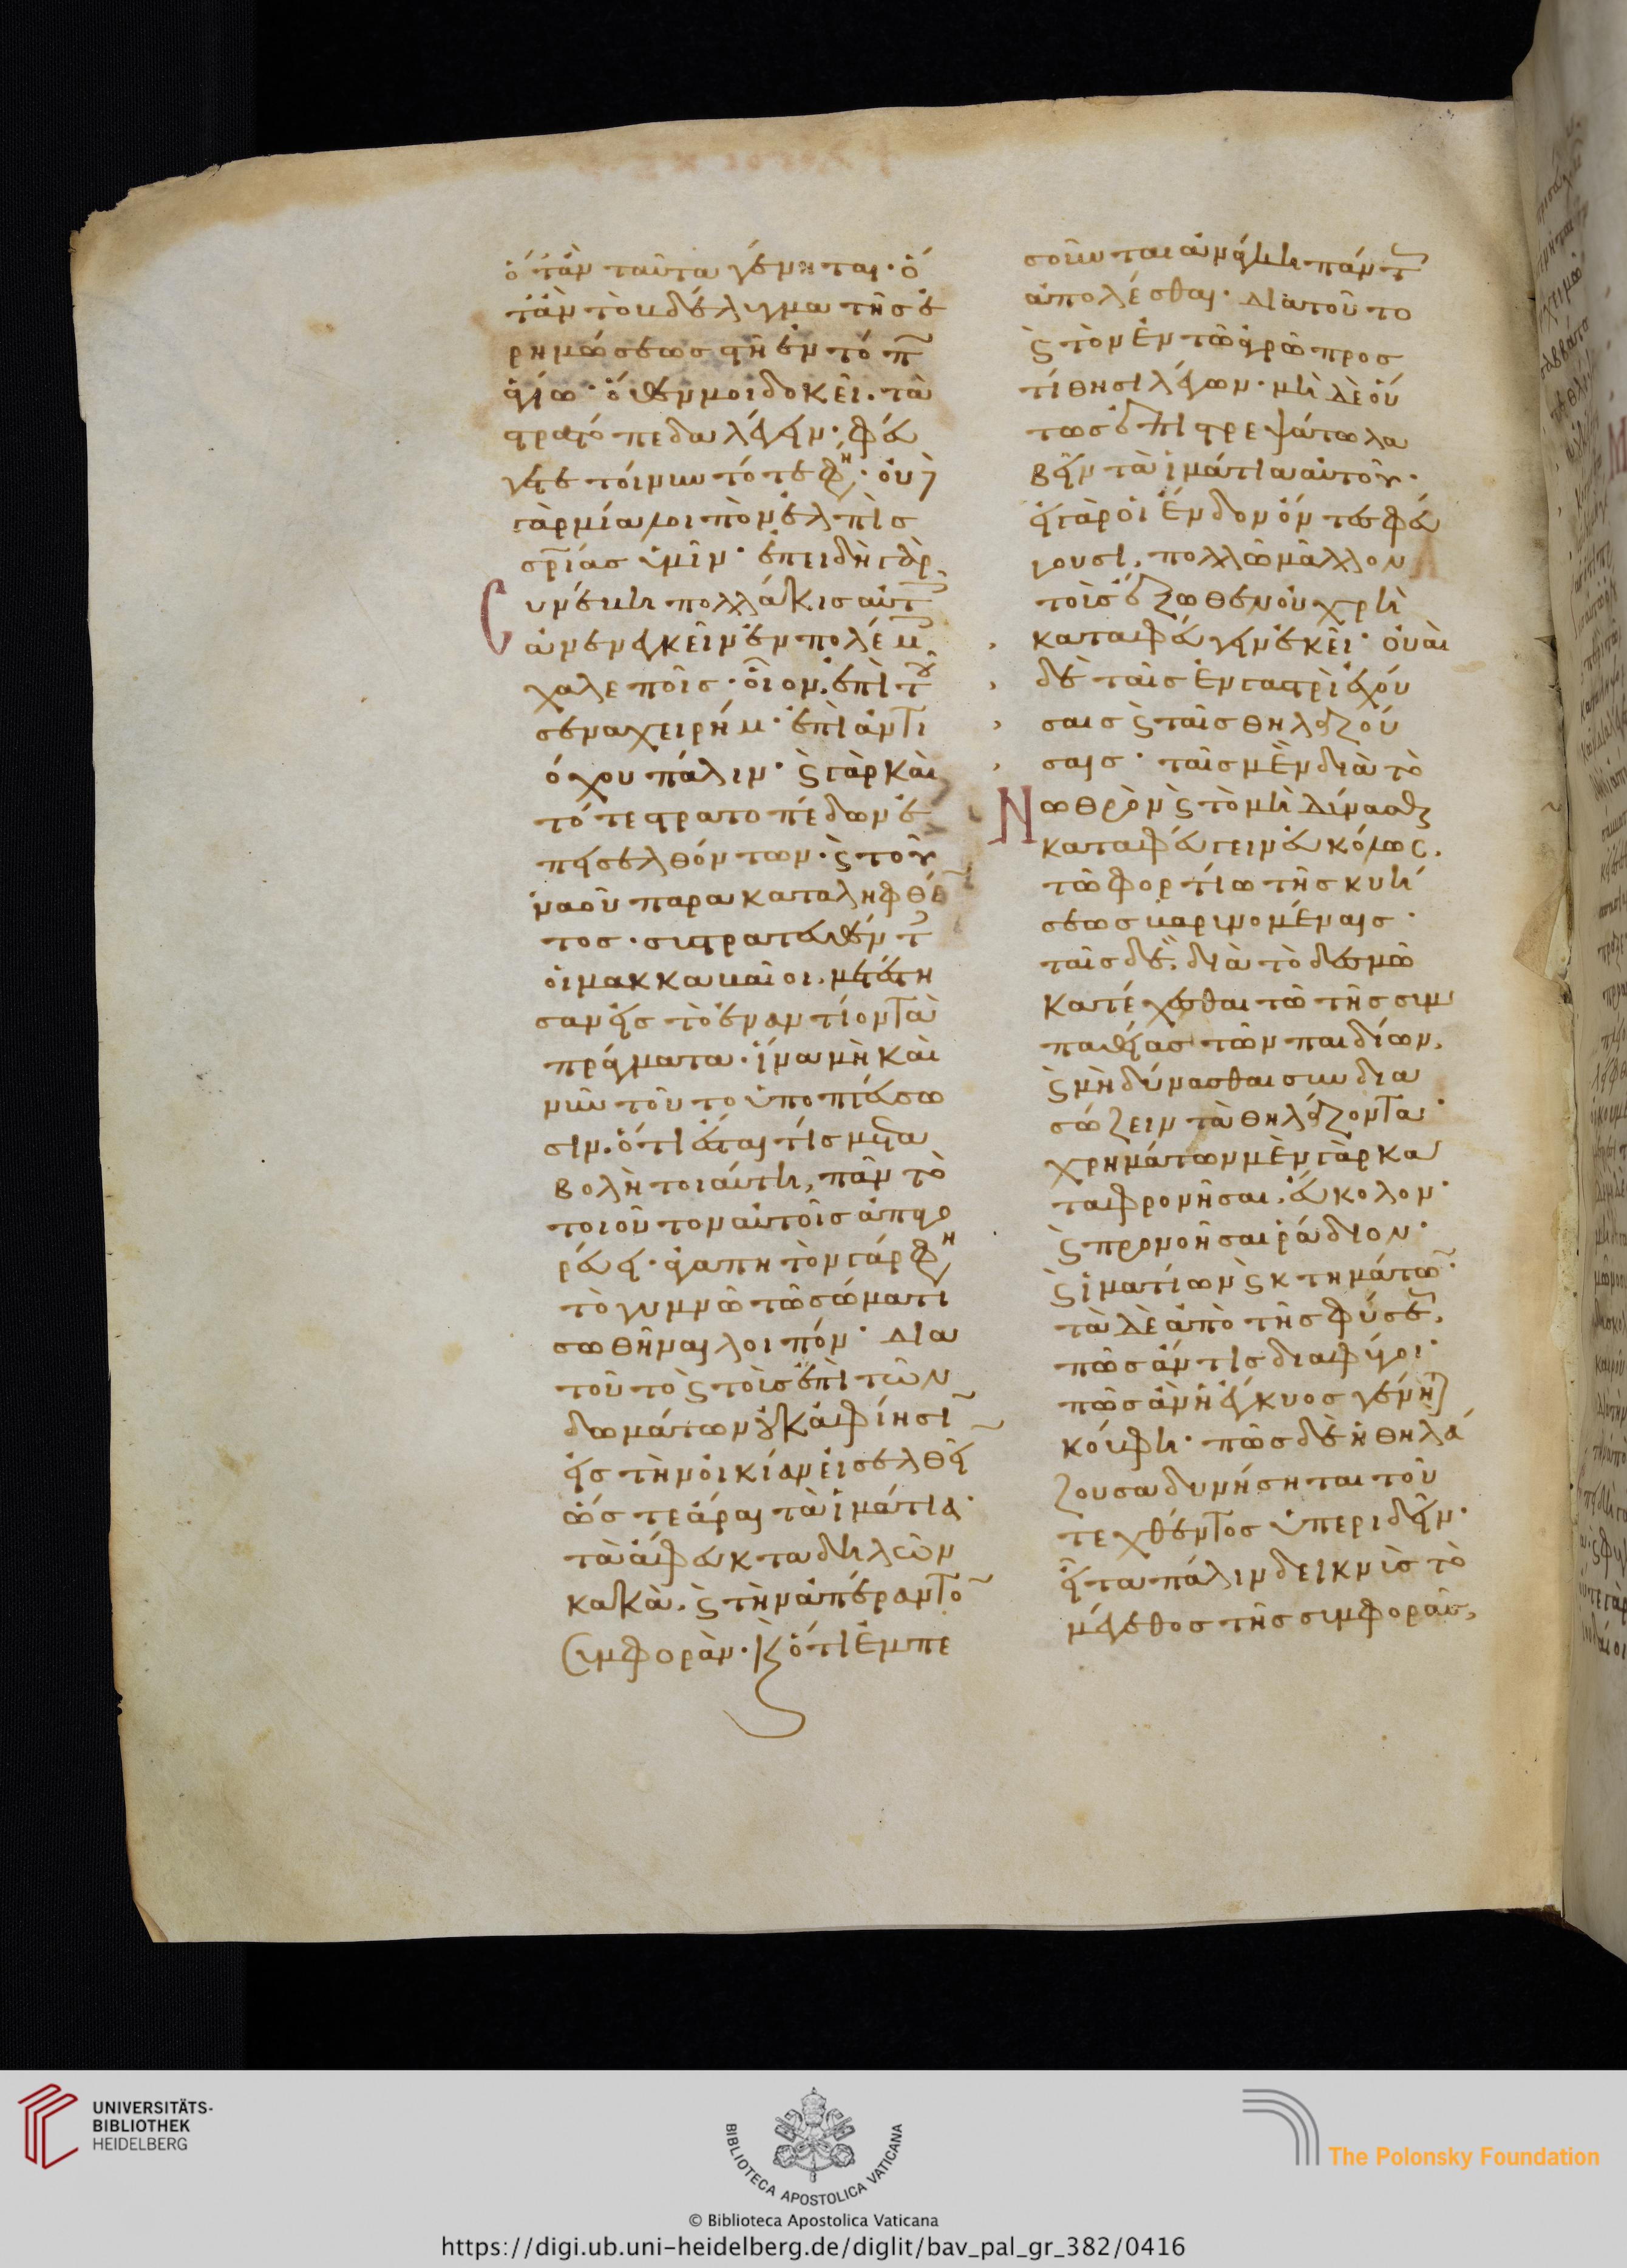 ὅταν ταῦτα γένηται· ὅ
ταν τὸ βδέλυγμα τῆς ἐ
ρημώσεως στῆ ἐν τόπ
ἁγίω· ὅθεν μοι δοκεῖ. τὰ
στρατόπεδα λέγειν· φεύ
γετε τοίνυν τότε φη· οὐδ
γὰρ μία λοιπὸν ἐλπὶς
σρίας ὑμῖν· ἐπειδὴ γὰρ
συνέβη πολλάκις αὐτ
ἀνενεγκεῖν ἐν πολέμ
χαλεποῖς· οἷον ἐπὶ τοῦ
σεναχειρήμ· ἐπὶ ἀντι
όχου πάλιν· ϛ γὰρ καὶ
τότε στρατοπέδων ἐ
πεισελθόντων· ϛ τοῦ
ναοῦ παρακαταληφθέ
τος· συστρατευθέντ
οἱ μακκαβαῖοι. μετέστη
σαν εἰς τὸ ἐναντίον τὰ
πράγματα· ἵνα μὴ καὶ
νῦν τοῦτο ὑποπτεύσω
σιν. ὅτι ἔσται τίς μετα
βολὴ τοιαύτη, πᾶν τὸ
τοιοῦτον αὐτοῖς ἀπαγο
ρεύει· ἀγαπητὸν γάρ φη
τὸ γυμνῶ τῶ σώματι
σωθῆναι λοιπόν· Δια
τοῦτο ϛ τοὺς ἐπὶ τῶν
δωμάτων οὐκ ἀφίησι
εἰς τὴν οἰκίαν εἰσελθεῖ
ὥστε ἆραι τὰ ἱμάτια·
τὰ ἄφευκτα δηλῶν
κακὰ. ϛ τὴν ἀπέραντο
συμφορὰν· κ ὅτι ἐμπε
σοῦνται ἀνάγκη πάντ
ἀπολέσθαι· Διατοῦτο
ϛ τὸν ἐν τῶ ἀγρῶ προσ
τίθησι λέγων· μὴ δὲ οὗ
τος ἐπιστρεψάτω λα
βεῖν τὰ ἱμάτια αὐτοῦ·
εἰ γὰρ οἱ ἔνδον ὄντες φεύ
γουσι, πολλῶ μᾶλλον
τοὺς ἔξωθεν οὐ χρὴ
καταφεύγειν ἐκεῖ· οὐαὶ
δὲ ταῖς ἐν γαστρὶ ἐχού
σαις ϛ ταῖς θηλαζού
σαις· ταῖς μὲν διὰ τὸ
νωθρὸν ϛ τὸ μὴ δύνασθ
καταφεύγειν εὐκόλως.
τῶ φορτίω τῆς κυή
σεως βαρυνομέναις·
ταῖς δὲ, διὰ τὸ δεσμῶ
κατέχεσθαι τῶ τῆς συμ
παθείας τῶν παιδίων,
ϛ μὴ δύνασθαι συνδια
σώζειν τὰ θηλάζοντα·
χρημάτων μὲν γὰρ κα
ταφρονῆσαι, εὔκολον·
ϛ προνοῆσαι ῥάδιον·
ϛ ἱματίων ϛ κτημάτω·
τὰ δὲ ἀπὸ τῆς φύσε,
πῶς ἄν τις διαφύγοι·
πῶς ἂν ἡ ἔγκυος γένη
κούφη· πῶς δὲ ἡ θηλά
ζουσα δυνήσηται τοῦ
τεχθέντος ὑπεριδεῖν·
εἶτα πάλιν δεικνὺς τὸ
μέγεθος τῆς συμφορᾶς,
UNIVERSITÄTS-
BIBLIOTHEK
HEIDELBERG
BIBLIOTECA APOSTOLICA VATICANA
The Polonsky Foundation
© Biblioteca Apostolica Vaticana
https://digi.ub.uni-heidelberg.de/diglit/bav_pal_gr_382/0416